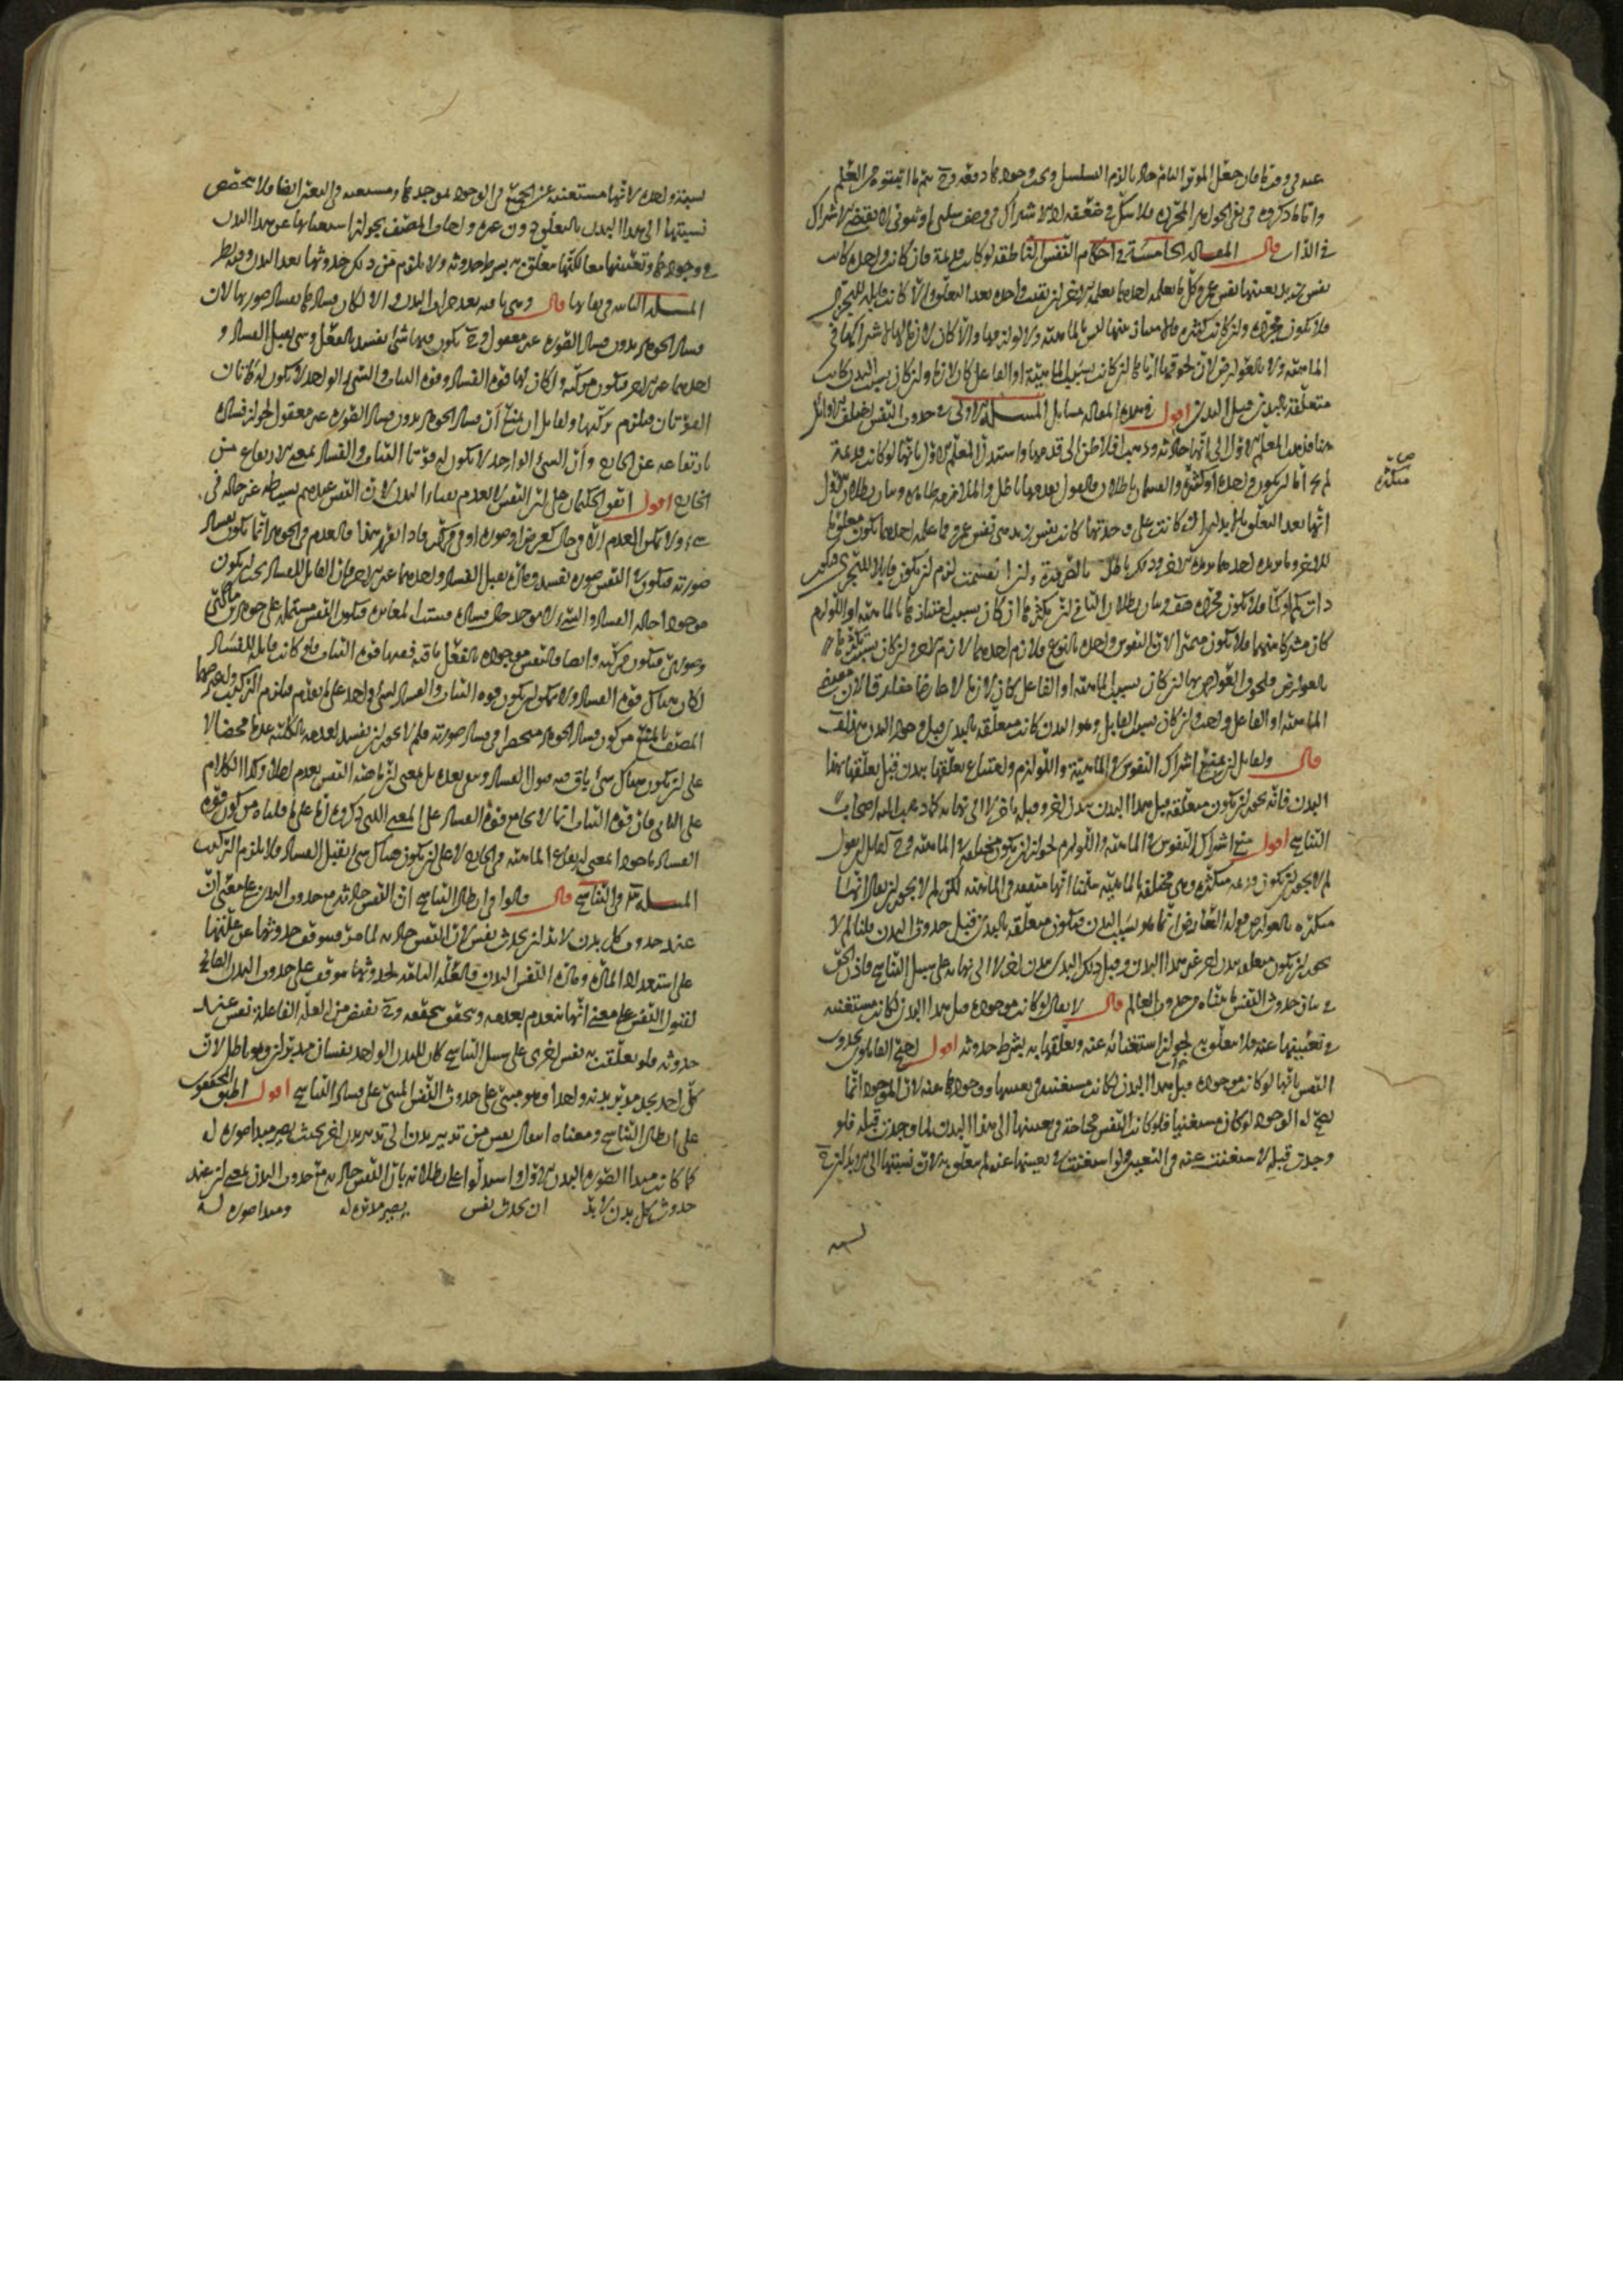 عنده في وقت ما فان جعل المؤثر التام حادثا لزم التسلسل
واما ما ذكروه في نفي الجواهر المجردة فلا شك في ضعفه اذ الاشتراك في وصف سلبي او ثبوتي لا يقتضي الاشتراك
في الذات قال المقالة الخامسة في احكام النفس الناطقة لو كانت قديمة فان كانت واحدة كانت
نفس زيد بعينها نفس عمرو وكل ما يعلمه احدهما يعلمه الاخر ان بقيت واحدة بعد التعلق والا كانت قابلة للتجزي
فلا تكون مجردة وان كانت متكثرة فالامتياز بينها ليس بالماهية ولا لوازمها والا كان لازما لها لاشتراكها في
الماهية ولا بالعوارض لان لحوقها اياها ان كانت بسبب الماهية او الفاعل كان لازما وان كان بسبب البدن كانت
متعلقة بالبدن قبل البدن اقول في هذه المقالة مسائل المسئلة الاولى في حدوث النفس اختلف الاوائل
هنا فذهب المعلم الاول الى انها حادثة وذهب افلاطن الى قدمها واستدل المعلم الاول بانها لو كانت قديمة
لم يخل اما ان يكون واحدة او متكثرة والقسمان باطلان فالقول بقدمها باطل والملازمة ظاهرة وبيان بطلان الاول
انها بعد التعلق بالابدان ان كانت على وحدتها كانت نفس زيد هي نفس عمرو فما علمه احدهما يكون معلوما
للاخر وما يريده احدهما يريده الاخر وذلك باطل بالضرورة وان انقسمت لزم ان يكون قابلا للتجزي فتكون
ذات كم او كما فلا تكون مجردة هف وبيان بطلان الثاني ان تكثرها ان كان بسبب امتيازها بالماهية او اللوازم
كان مشتركا بينهما فلا يكون مميزا لان النفوس واحدة بالنوع فلازم احدهما لازم الاخر وان كان بسبب تكثرها
بالعوارض فلحوق العوارض بها ان كان بسبب الماهية او الفاعل كان لازما لا عارضا مفارقا لان مقتضى
الماهية او الفاعل واحد وان كان بسبب القابل وهو البدن كانت متعلقة بالبدن قبل وجود البدن هذا خلف
قال ولقائل ان يمنع اشتراك النفوس في الماهية واللوازم وامتناع تعلقها ببدن قبل تعلقها بهذا
البدن فانه يجوز ان يكون متعلقة قبل هذا البدن ببدن اخر وقبله باخر لا الى نهاية كما ذهب اليه اصحاب
التناسخ اقول منع اشتراك النفوس في الماهية واللوازم لجواز ان يكون مختلفة في الماهية وح لقائل ان يقول
لم لا يجوز ان يكون قديمة متكثرة وهي مختلفة بالماهية سلمنا انها متفقة في الماهية لكن لم لا يجوز ان يقال انها
متكثرة بالعوارض قوله العارض انما هو بسبب البدن فيكون متعلقة بالبدن قبل حدوث البدن قلنا لم لا
يجوز ان يكون متعلقة ببدن اخر غير هذا البدن وقبل ذلك البدن ببدن اخر لا الى نهاية على سبيل التناسخ فاذن الحق
في بيان حدوث النفس ما بيناه من حدوث العالم قال لا يقال لو كانت موجودة قبل هذا البدن لكانت مستغنية
في تعينها عنه فلا تعلق به لجواز استغنائه عنه وتعلقها به بشرط حدوثه اقول احتج القائلون بحدوث
النفس بانها لو كانت موجودة قبل هذا البدن لكانت مستغنية في تعينها ووجودها عنه لان الموجود انما
يصح له الوجود لو كان مستغنيا فلو كانت النفس محتاجة في تعينها الى هذا البدن لما وجدت قبله فلو
وجدت قبله لاستغنت عنه في التعين ولو استغنت في تعينها عنه لم تتعلق به لان نسبتها الى الابدان ح
نسبة
صح
متكثرة
نسبة واحدة لانها مستغنية عن الجميع في الوجود لوجودها ومستغنية في التعين ايضا فلا يتخصص
نسبتها الى هذا البدن بالتعلق دون غيره واجاب المصنف بجواز استغنائها عن هذا البدن
في وجودها وتعينها معا لكنها تعلق به بشرط حدوثه ولا يلزم من ذلك حدوثها بعد البدن وفيه نظر
المسئلة الثانية في بقائها قال وهي باقية بعد خراب البدن والا لكان فسادها بفساد صورتها لان
فساد الجوهر بدون فساد الصورة غير معقول وح يكون فيها شئ يفسد بالفعل وشئ يقبل الفساد و
احدهما غير الاخر فتكون مركبة ولكان لها قوة الفساد وقوة الثبات والشئ الواحد لا يكون له هاتان
القوتان فيلزم تركبها ولقائل ان يمنع ان فساد الجوهر بدون فساد الصورة غير معقول لجواز فساده
بارتفاعه عن الخارج وان الشئ الواحد لا يكون له قوتا الثبات والفساد بمعنى الارتفاع من
الخارج اقول اتفق الحكماء على ان النفس لا تعدم بفناء البدن لان النفس عندهم بسيطة غير حالة في
شئ ولا يمكن العدم الا في حال كعرض او صورة او في مركب فاذا تقرر هذا فالعدم في الجوهر انما يكون بفساد
صورته فتكون في النفس صورة تفسد ومادة تقبل الفساد واحدهما غير الاخر فان القابل للفساد يجب ان يكون
موجودا حالة الفساد والشئ لا يوجد حال فساده فيثبت المغايرة فتكون النفس مشتملة على جوهرين مادي
وصوري فتكون مركبة وايضا فالنفس موجودة بالفعل باقية ففيها قوة الثبات فلو كانت قابلة للفساد
لكان هناك قوة الفساد ولا يمكن ان يكون قوة الثبات والفساد لشئ واحد على ما تقدم فيلزم التركيب واعترض
المصنف بالمنع من كون فساد الجوهر منحصرا في فساد صورته فلم لا يجوز ان يفسد لعدمه بالكلية عدما محضا لا
على ان يكون هناك شئ باق فيه قبول الفساد وهي بعده بل بمعنى ان ماهية النفس تعدم اصلا وكذا الكلام
على الثاني فان قوة الثبات انما لا يجامع قوة الفساد على المعنى الذي ذكروه اما على ما قلناه من كون قوة
الفساد ماخوذا بمعنى ارتفاع الماهية في الخارج لا على ان يكون هناك شئ يقبل الفساد فلا يلزم التركيب
المسئلة ٣ في التناسخ قال قالوا في ابطال التناسخ ان النفس حادثة مع حدوث البدن على معنى ان
عند حدوث كل بدن لا بد ان يحدث نفس لان النفس حادثة لما مر فيتوقف حدوثها عن علتها
على استعداد المادة ومادة النفس البدن فالعلة التامة لحدوثها موقوف على حدوث البدن الصالح
لقبول النفس على معنى انها تنعدم بعدمه وتتحقق بتحققه وح يفيض من العلة الفاعلة نفس عند
حدوثه فلو تعلقت به نفس اخرى على سبيل التناسخ كان للبدن الواحد نفسان مدبرتان وهو باطل لان
كل احد يجد مدبر بدنه واحدا وهو مبني على حدوث النفس المبني على فساد التناسخ اقول اطبق المحققون
على ابطال التناسخ ومعناه انتقال نفس من تدبير بدن الى تدبير بدن اخر بحيث يصير مبدا صورة له
كما كانت مبدا الصورة البدن الاول واستدلوا على بطلانه بان النفس حادثة مع حدوث البدن بمعنى ان عند
حدوث كل بدن لا بد ان يحدث نفس يصير مدبرة له ومبدا صورة له